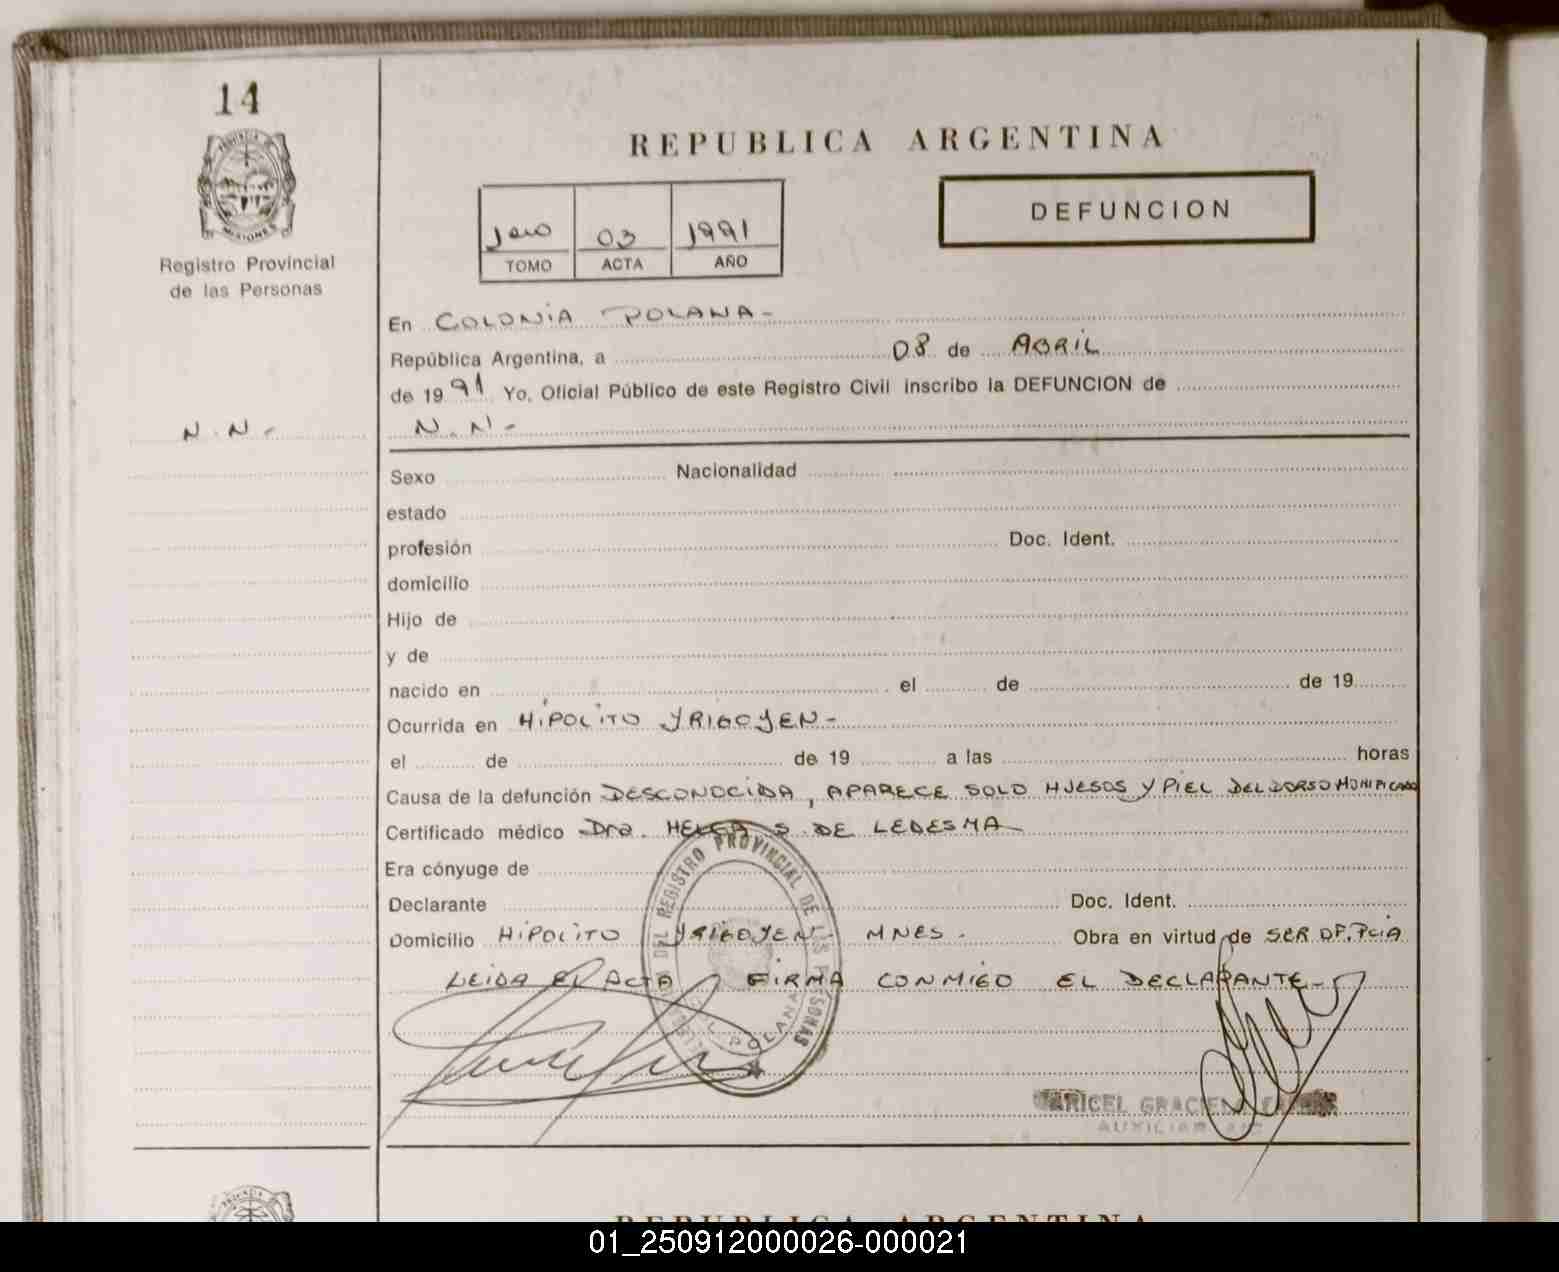 14
PROVINCIA
MISIONES
Registro Provincial
de las Personas
REPUBLICA ARGENTINA
DEFUNCION
03 1991
TOMO ACTA AÑO
En COLONIA POLANA -
República Argentina, a 08 de ABRIL
de 1991 Yo, Oficial Público de este Registro Civil inscribo la DEFUNCION de
N.N- N.N-
Sexo Nacionalidad
estado
profesión Doc. Ident.
domicilio
Hijo de
y de
nacido en el de de 19
Ocurrida en HIPOLITO YRIGOYEN -
el de de 19 a las horas
Causa de la defunción DESCONOCIDA, APARECE SOLO HUESOS Y PIEL DEL DORSO MOMIFICADO
Certificado médico Dra. HELGA S. DE LEDESMA
Era cónyuge de
Declarante Doc. Ident.
Domicilio HIPOLITO YRIGOYEN - MNES. Obra en virtud de SER OF. PCIA
LEIDA EL ACTA FIRMA CONMIGO EL DECLARANTE -
DEL REGISTRO PROVINCIAL DE LAS PERSONAS
POLANA
MARICEL GRACIELA
AUXILIAR
REPUBLICA ARGENTINA
01_250912000026-000021